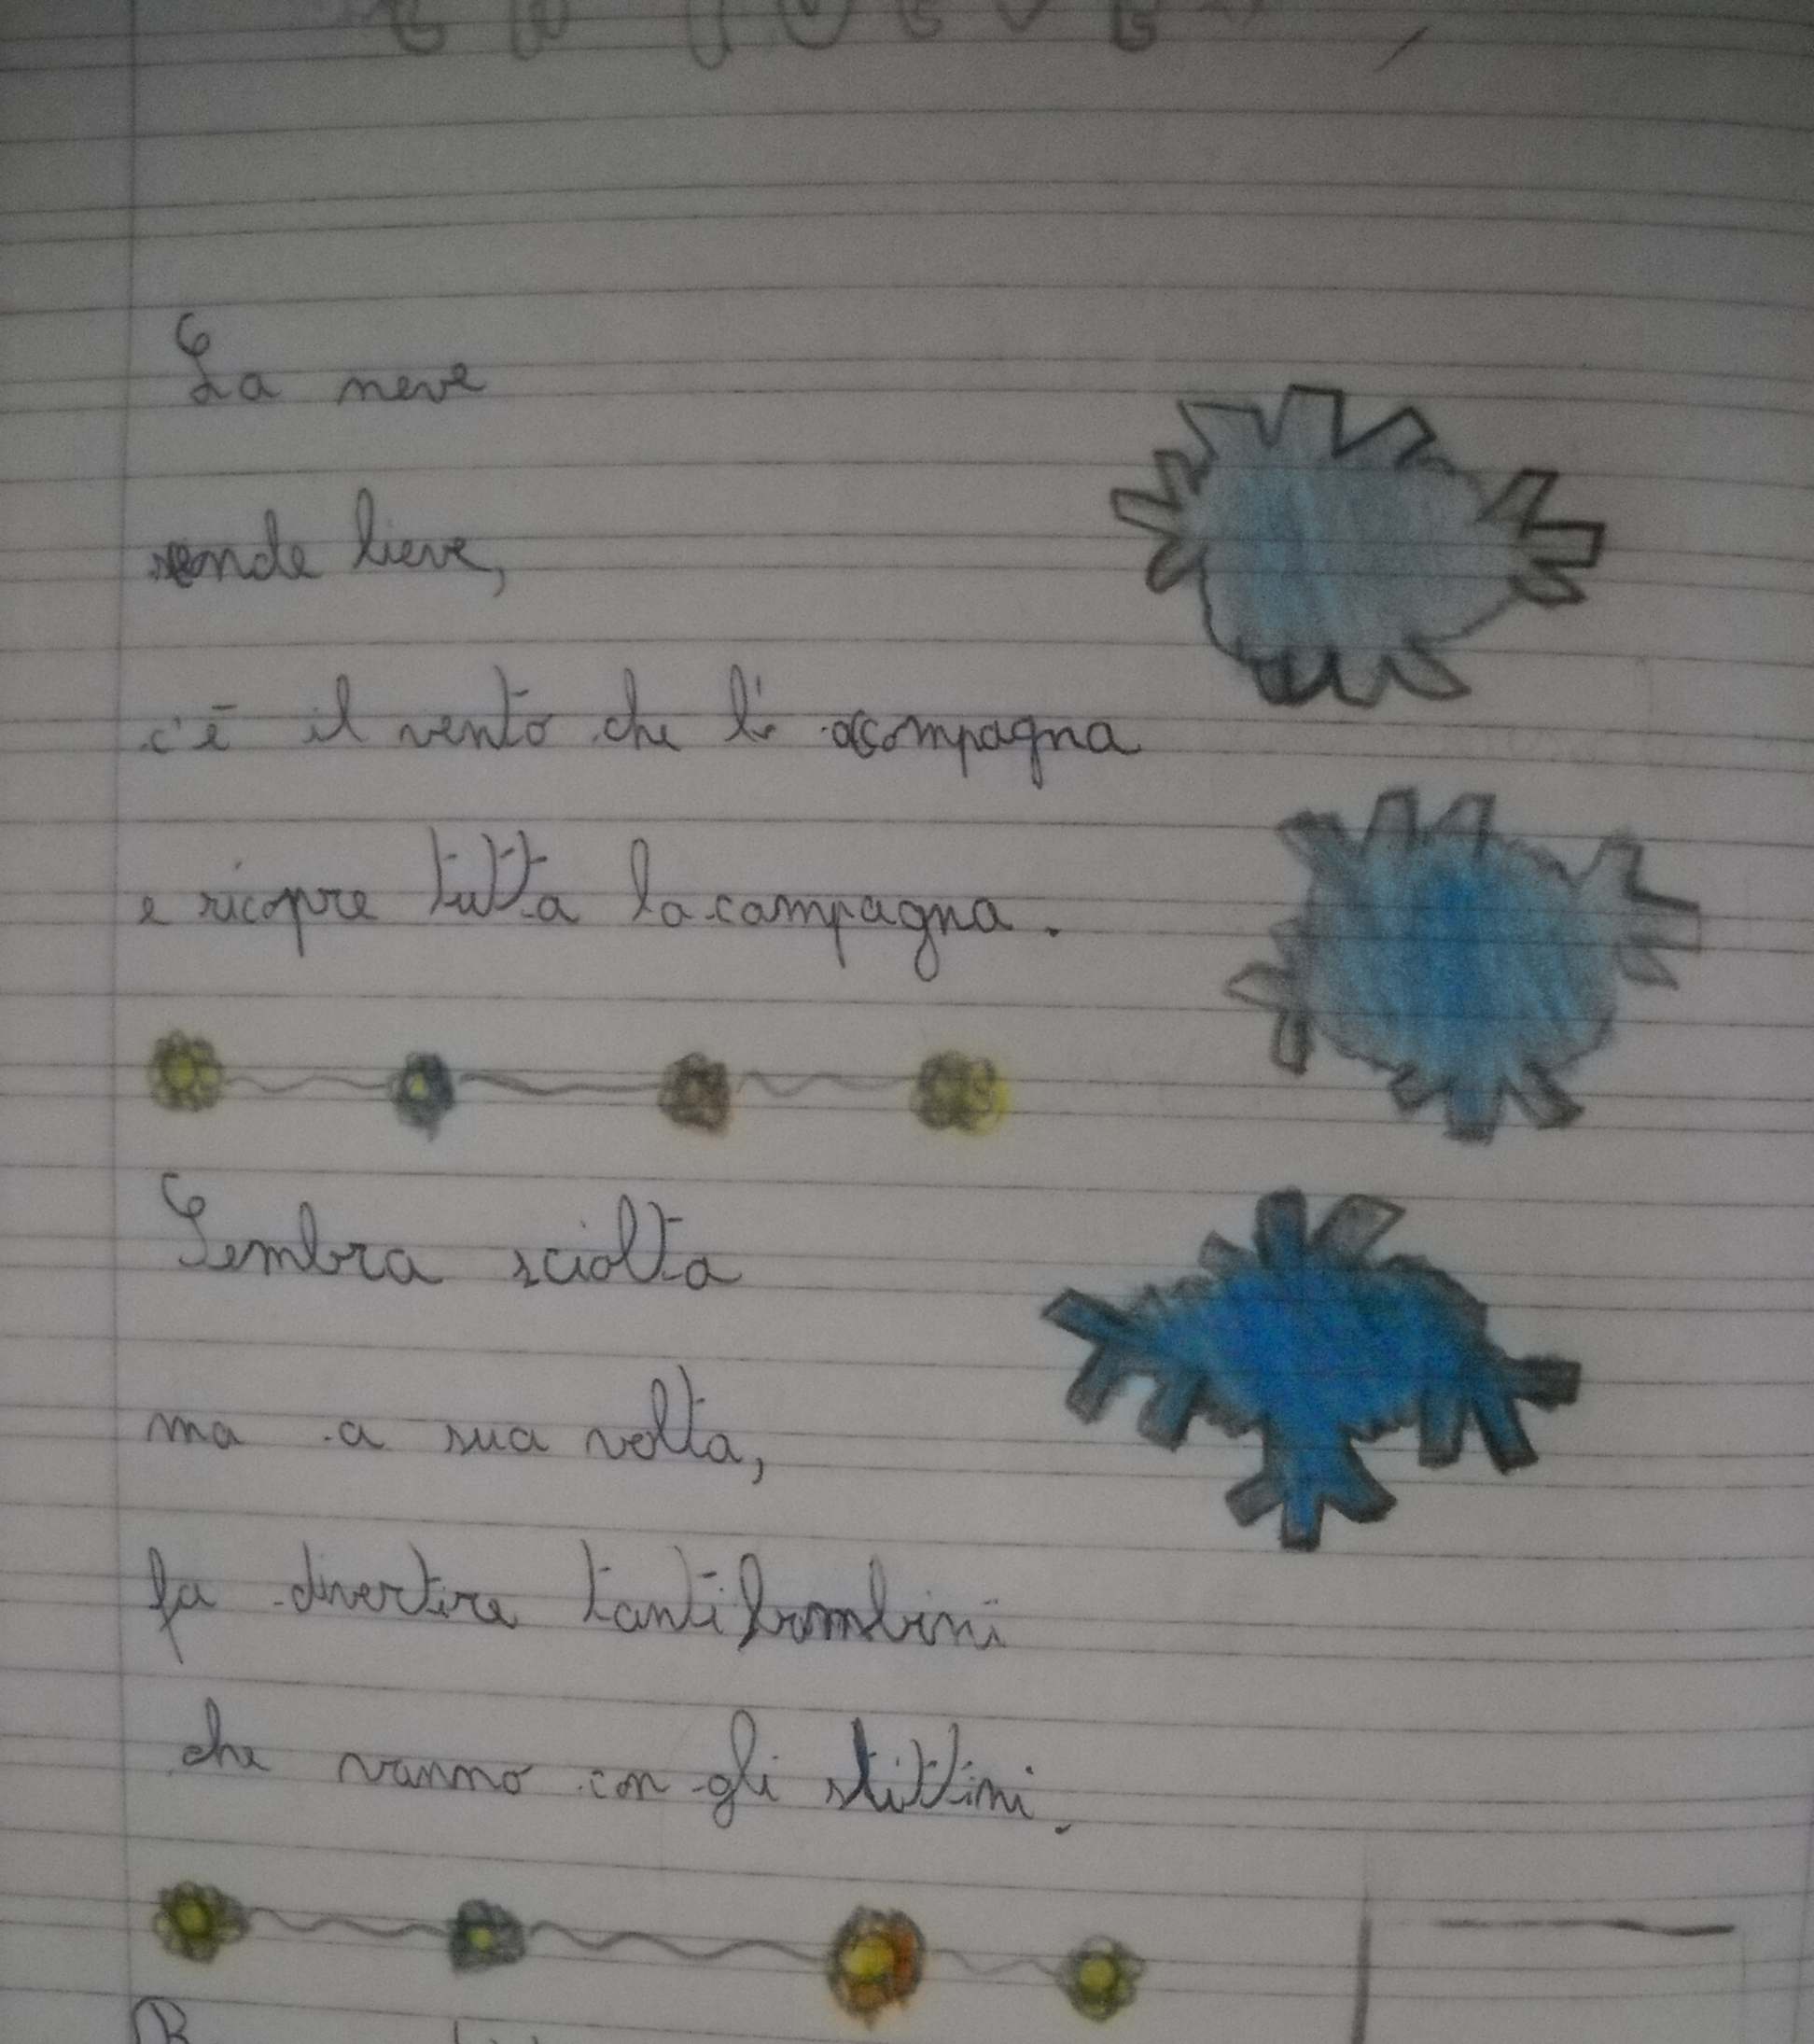 La neve
rende lieve,
c'è il vento che l' accompagna
e ricopre tutta la campagna.
Sembra sciolta
ma a sua volta,
fa divertire tanti bambini
che vanno con gli slittini.